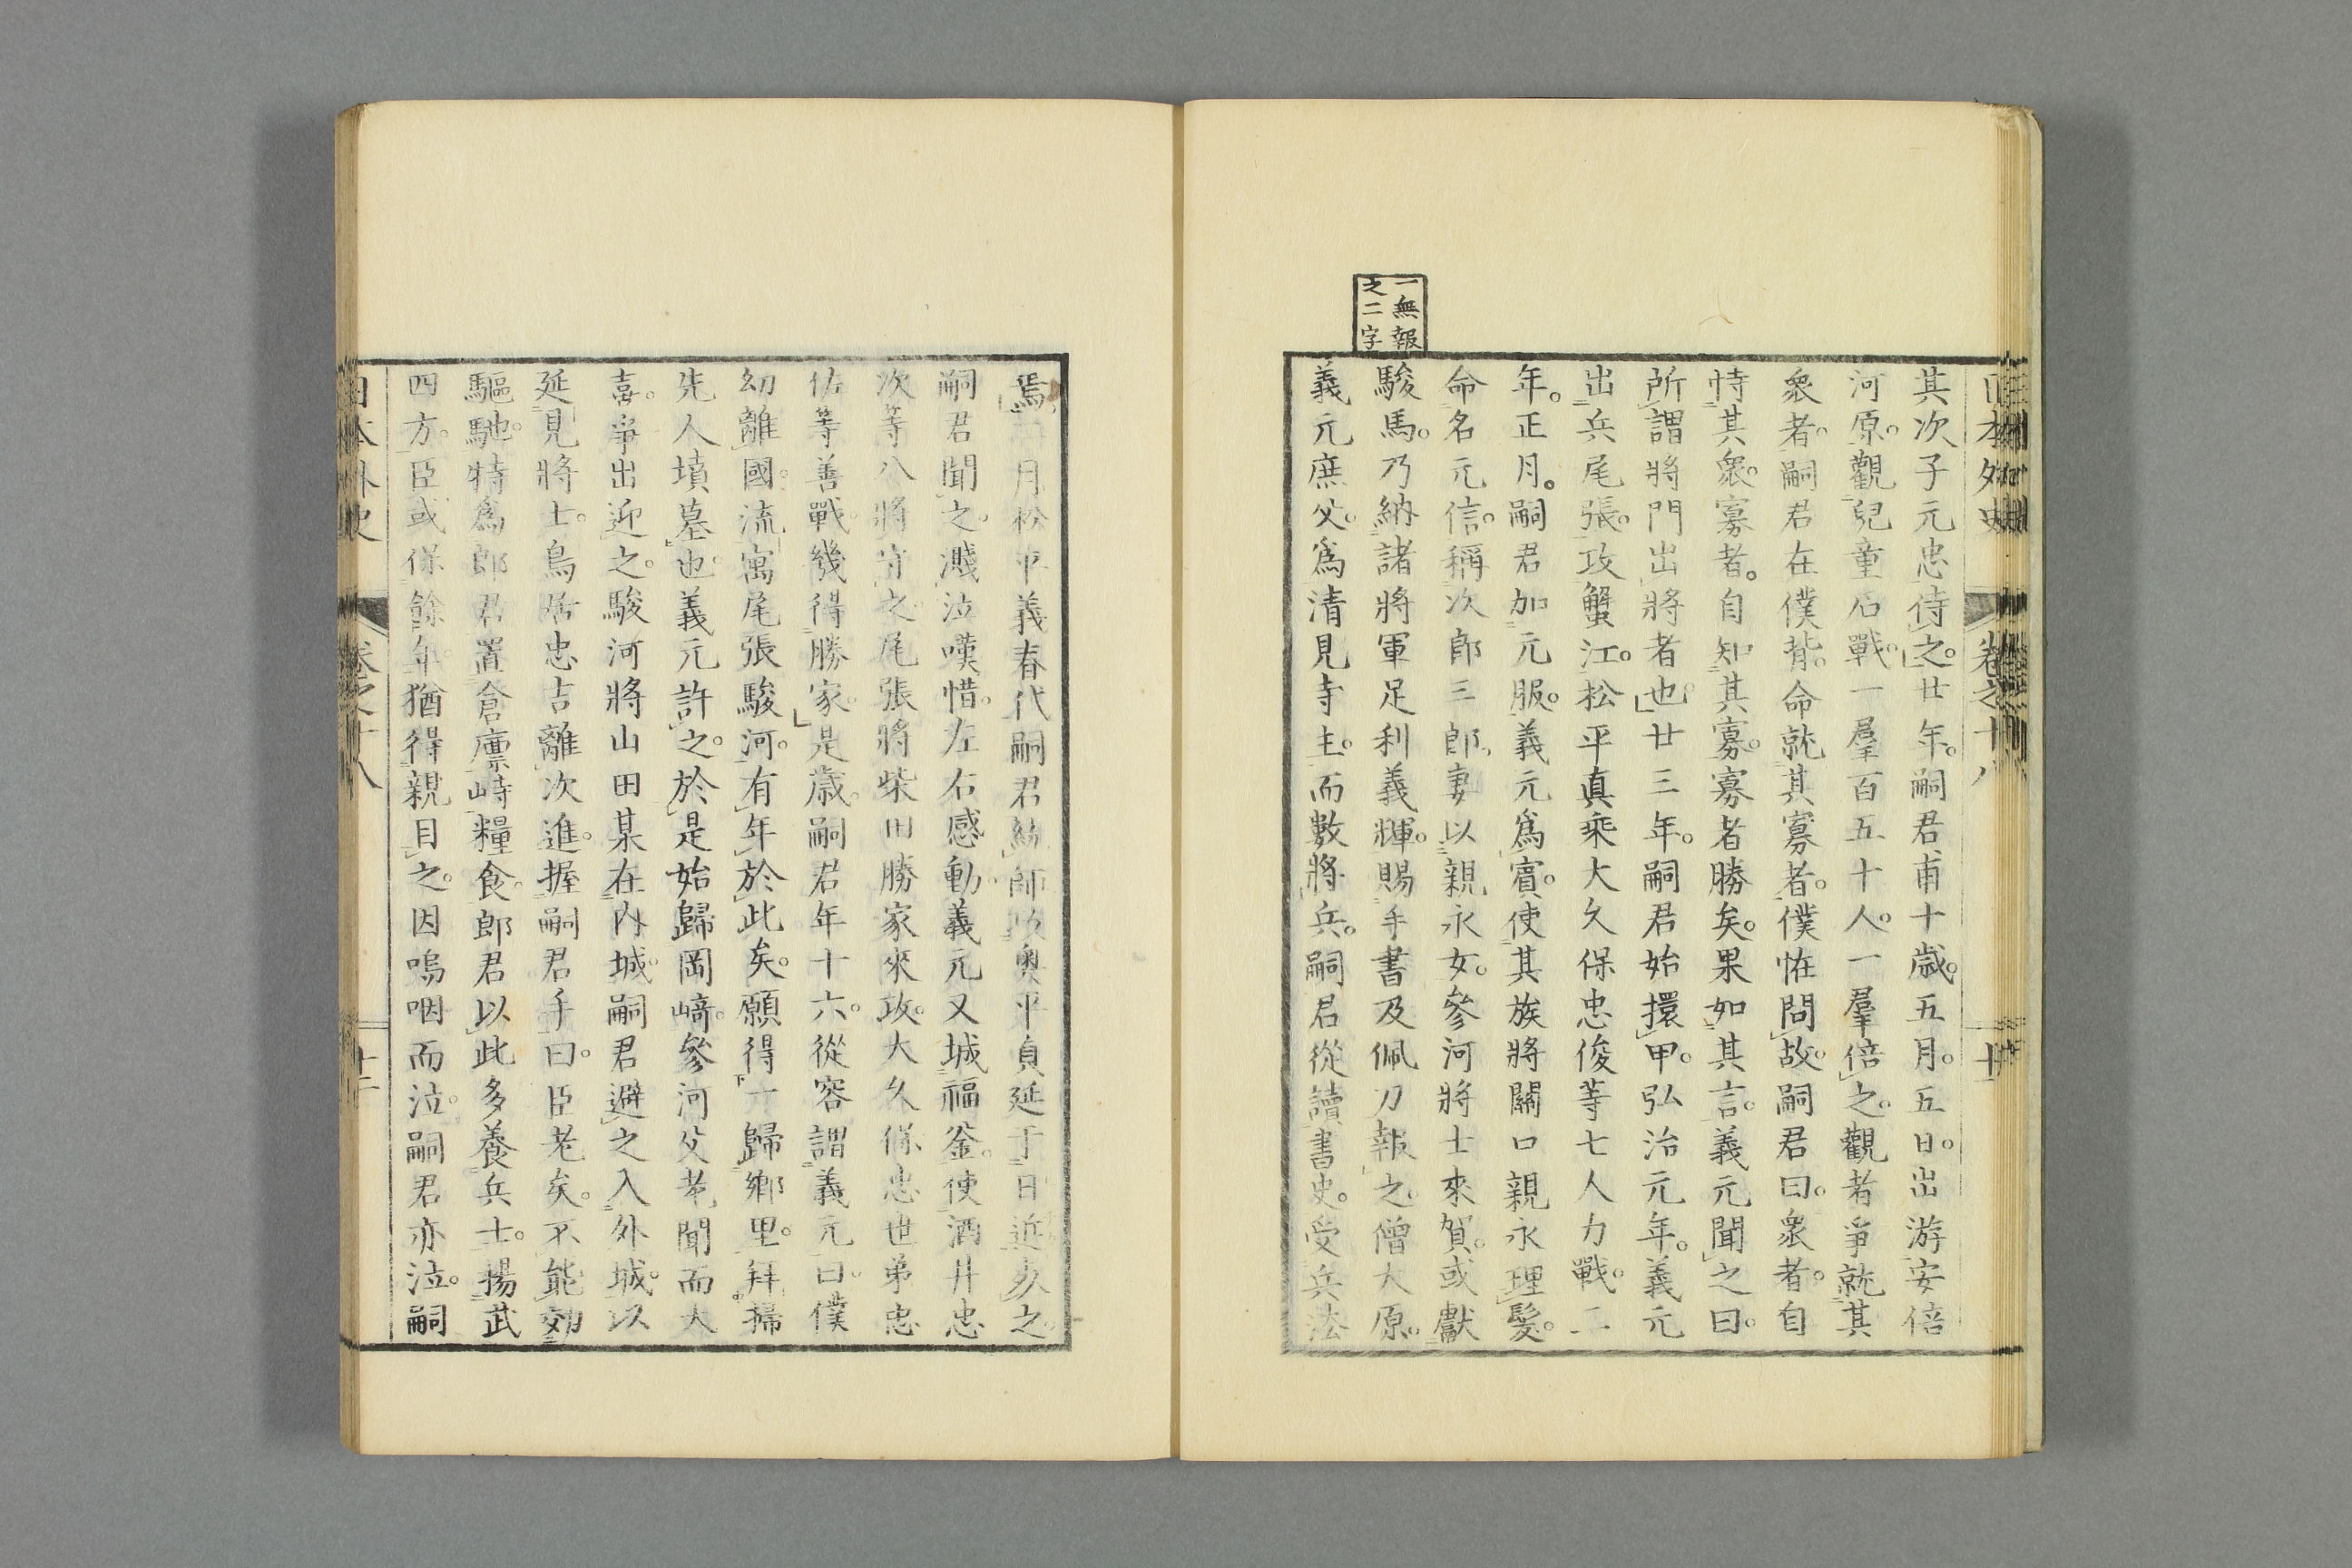 日本外史
卷之十八
十一
其次子元忠侍之。廿年。嗣君甫十歲。五月。五日。出游安倍
河原。觀兒童石戰。一羣百五十人。一羣倍之。觀者爭就其
衆者。嗣君在僕背。命就其寡者。僕恠問故。嗣君曰。衆者。自
恃其衆。寡者。自知其寡。寡者勝矣。果如其言。義元聞之曰。
所謂將門出將者也。廿三年。嗣君始擐甲。弘治元年。義元
出兵尾張。攻蟹江。松平真乘大久保忠俊等七人力戰。二
年。正月。嗣君加元服。義元爲賓。使其族將關口親永理髮。
命名元信。稱次郎三郎。妻以親永女。參河將士來賀。或獻
一無報
之二字
駿馬。乃納諸將軍足利義輝。賜手書及佩刀報之。僧大原。
義元庶父。爲清見寺主。而數將兵。嗣君從讀書史。受兵法
焉。月松平義春代嗣君師攻奥平貞延于日近。之。
嗣君聞之。濺泣嘆惜。左右感動。義元又城福釜。使酒井忠
次等八將守之。尾張將柴田勝家來攻。大久保忠世弟忠
佐等善戰。幾得勝家。是歲。嗣君年十六。從容謂義元曰。僕
幼離國。流寓尾張駿河。有年於此矣。願得一歸鄉里。拜掃
先人墳墓也。義元許之。於是始歸岡崎。參河父老聞而大
喜。爭出迎之。駿河將山田某在內城。嗣君避之入外城。以
延見將士。鳥居忠吉離次進。握嗣君手曰。臣老矣。不能効
驅馳。特爲郎君置倉廩峙糧食。郎君以此多養兵士。揚武
四方。臣或保餘年。猶得親目之。因嗚咽而泣。嗣君亦泣。嗣
日本外史
卷之十八
十二